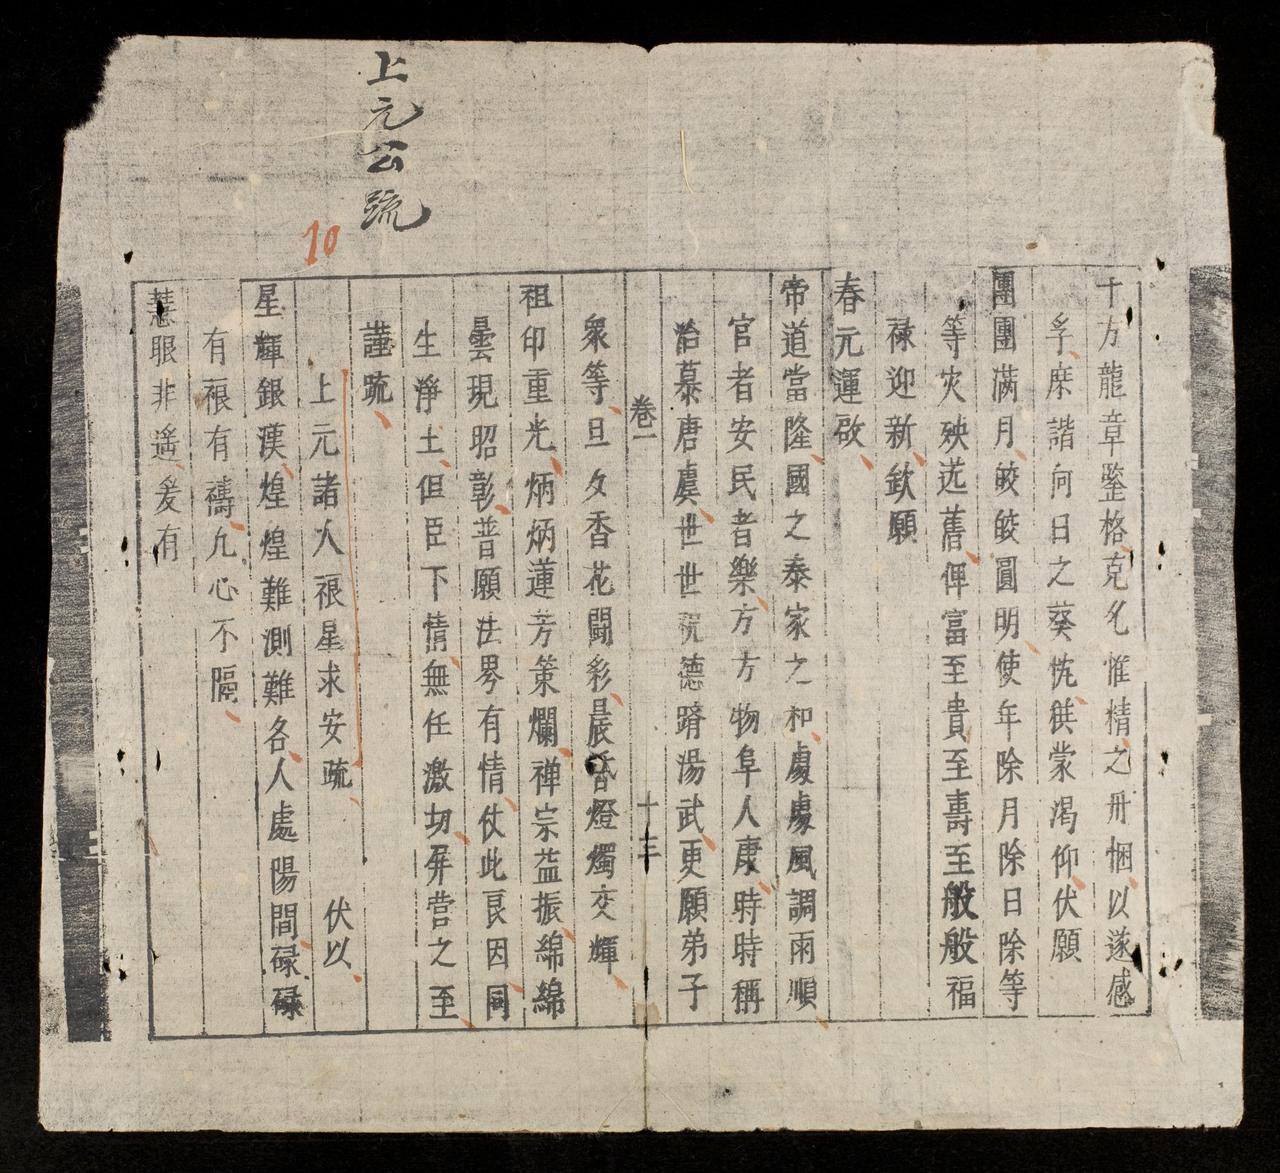 上元公䟽
10
十方龍章鍳格克乆惟精之丹悃以遂感
孚庶諧向日之葵忱鉄蒙渴仰伏願
團團滿月皎皎圓明使年除月除日除等
等灾殃送舊俾富至貴至壽至般般福
祿迎新欽願
春元運啟
帝道當隆國之泰家之和處處風調雨順
官者安民者樂方方物阜人康時時稱
洽慕唐虞世世祝德躋湯武更願弟子
卷一
十三
衆等旦夕香花鬪彩晨昏燈燭交輝
祖印重光炳炳蓮芳策爛禅宗益振綿綿
曇現昭彰普願法界有情仗此良因同
生淨土但臣下情無任激切屏营之至
謹䟽
上元諸人禳星求安疏 伏以
星輝銀漢煌煌難測難名人處陽間碌碌
有禳有禱凢心不隔
慧眼非遥爰有